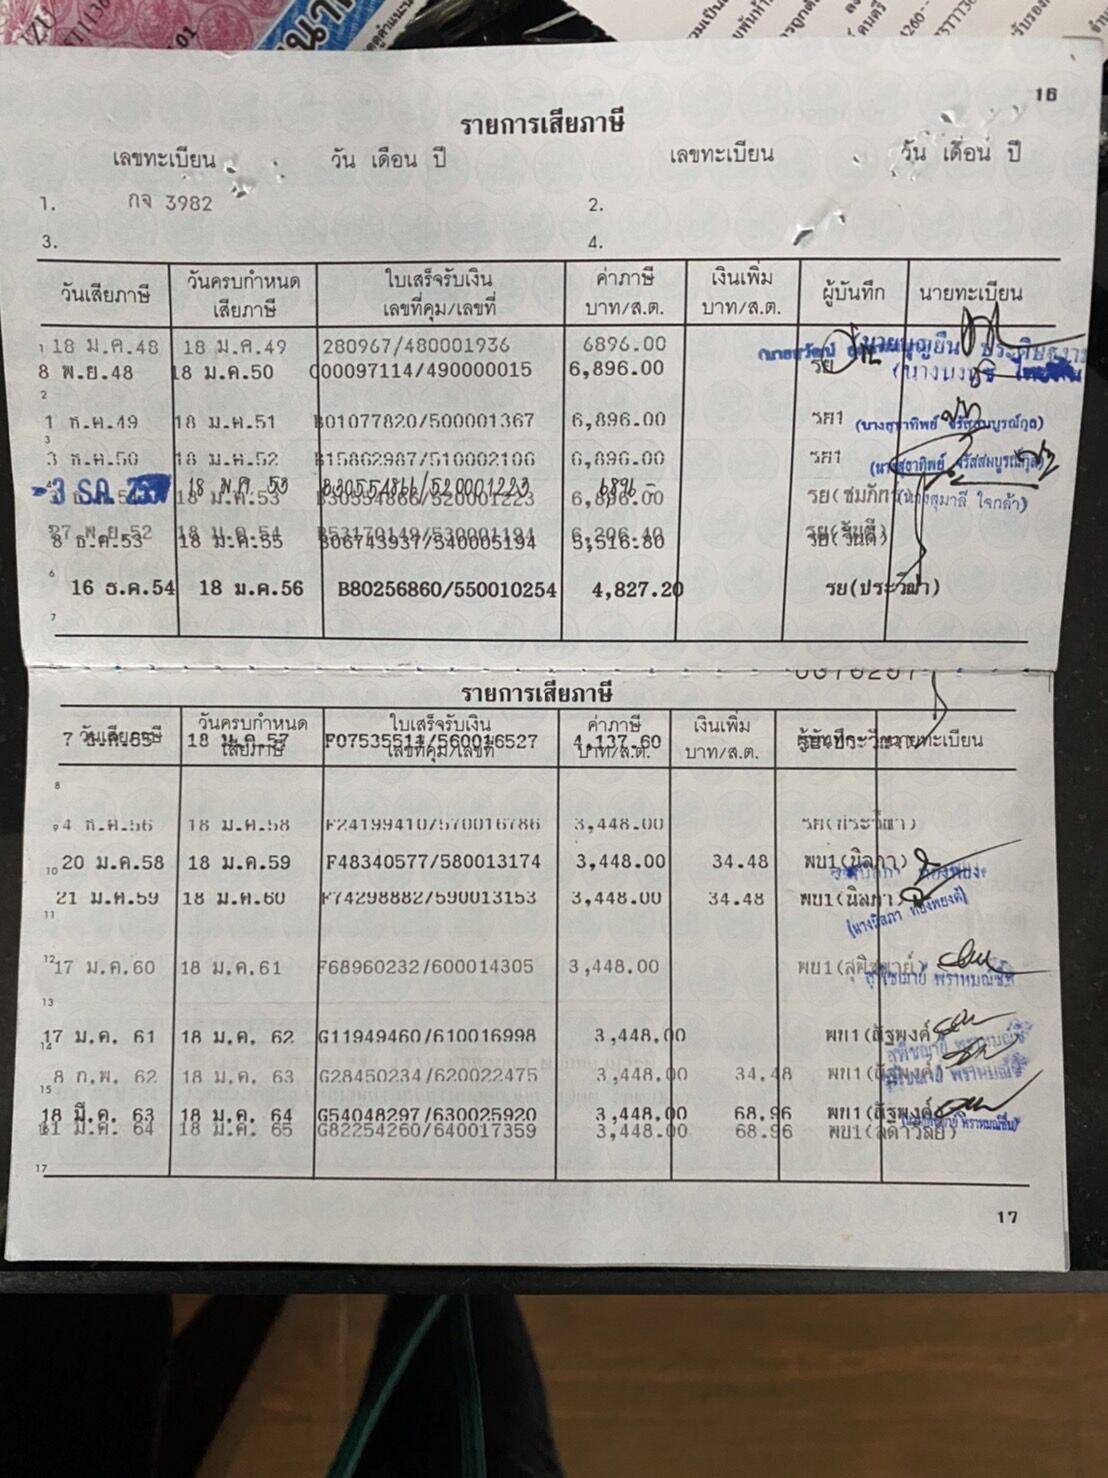 16
รายการเสียภาษี
เลขทะเบียน วัน เดือน ปี เลขทะเบียน วัน เดือน ปี
1. กจ 3982 2.
3. 4.
วันเสียภาษี วันครบกำหนดเสียภาษี ใบเสร็จรับเงิน เลขที่คุม/เลขที่ ค่าภาษี บาท/ส.ต. เงินเพิ่ม บาท/ส.ต. ผู้บันทึก นายทะเบียน
1 18 ม.ค.48 18 ม.ค.49 280967/480001936 6896.00
8 พ.ย.48 18 ม.ค.50 000097114/490000015 6,896.00 รย
2
1 ธ.ค.49 18 ม.ค.51 B01077820/500001367 6,896.00 รย1
3
3 ธ.ค.50 18 ม.ค.52 B15862987/510002106 6,896.00 รย1
4
18 ม.ค 53
18 ม.ค.53 B30554866/520001223 6,896.00 (นางสุมาลี ใจกล้า)
27 พ.ย.52 18 ม.ค.54 B53170149/530001194 6,206.40
8 ธ.ค.53 18 ม.ค.55 B06743937/540005194 5,516.80
6
16 ธ.ค.54 18 ม.ค.56 B80256860/550010254 4,827.20 รย(ประวีณา)
7
รายการเสียภาษี
วันเสียภาษี วันครบกำหนดเสียภาษี ใบเสร็จรับเงิน เลขที่คุม/เลขที่ ค่าภาษี บาท/ส.ต. เงินเพิ่ม บาท/ส.ต. ผู้บันทึก นายทะเบียน
18 ม.ค.57 4,137.60
8
9 4 ธ.ค.56 18 ม.ค.58 F24199410/570016786 3,448.00 รย(ประวีณา)
10 20 ม.ค.58 18 ม.ค.59 F48340577/580013174 3,448.00 34.48 พบ1(นิลภา)
21 ม.ค.59 18 ม.ค.60 F74298882/590013153 3,448.00 34.48 พบ1(นิลภา)
11
12 17 ม.ค.60 18 ม.ค.61 F68960232/600014305 3,448.00
13
17 ม.ค. 61 18 ม.ค. 62 G11949460/610016998 3,448.00 พบ1(สิฐพงศ์
14
8 ก.พ. 62 18 ม.ค. 63 G28450234/620022475 3,448.00 34.48
15
18 มี.ค. 63 18 ม.ค. 64 G54048297/630025920 3,448.00 68.96 พบ1(สิฐพงศ์
18 ม.ค. 65 G82254260/640017359 3,448.00 68.96 พบ1(ลดาวัลย์)
17
17